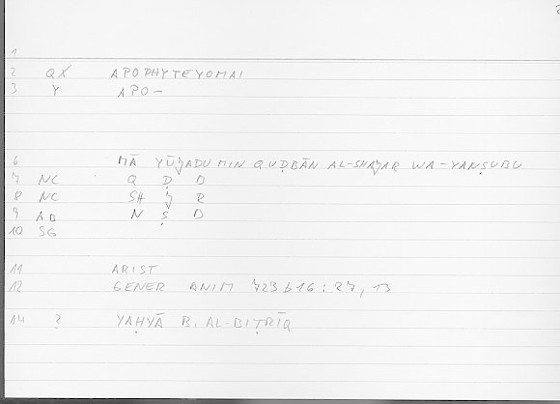 1
2 QX APOPHYTEYOMAI
3 Y APO-
6 MĀ YŪʒADU MIN QUḌBĀN AL-SHAʒAR WA-YANṢUBU
7 NC Q Ḍ B
8 NC SH ʒ R
9 AB N Ṣ B
10 SG
11 ARIST
12 GENER ANIM 723 b 16 : 27, 13
14 ? YAḤYĀ B. AL-BIṬRĪQ